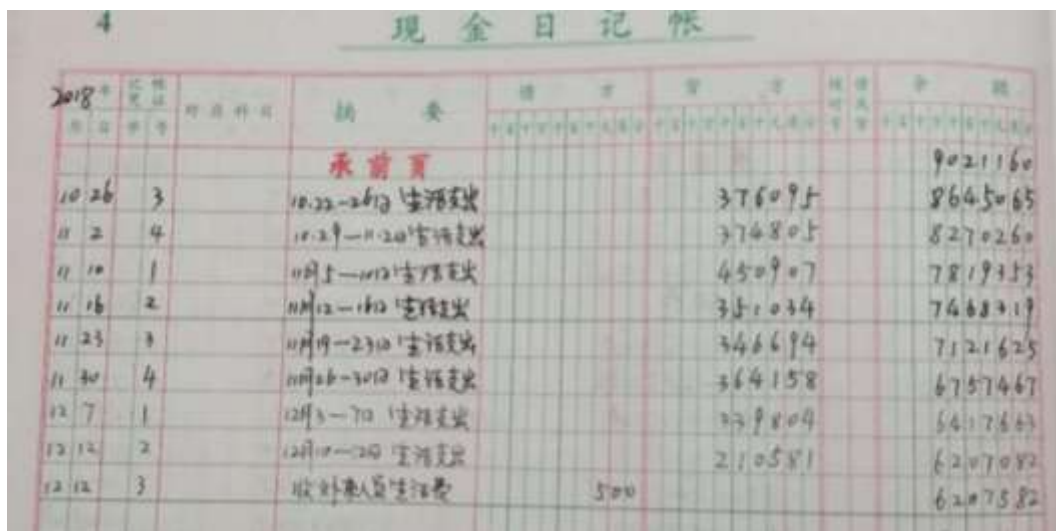 4
现金日记帐
2018年 记帐凭证 对方科目 摘要 借方 贷方 余额
月 日 字 号
承前页 9021160
10 26 3 10.22-26日生活支出 376095 8645065
11 2 4 10.29-11.2日生活支出 374805 8270260
11 10 1 11月5-10日生活支出 450907 7819353
11 16 2 11月12-16日生活支出 351034 7468319
11 23 3 11月19-23日生活支出 346694 7121625
11 30 4 11月26-30日生活支出 364158 6757467
12 7 1 12月3-7日生活支出 339804 6417663
12 12 2 12月10-12日生活支出 210581 6207082
12 12 3 收外来人员生活费 500 6207582